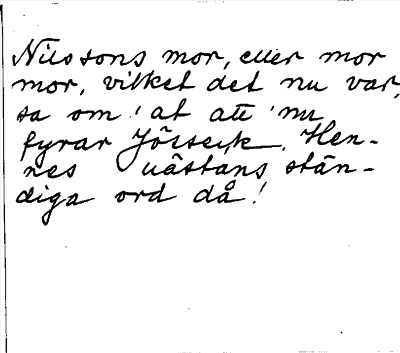 Nilssons mor, eller mor
mor, vilket det nu var,
sa om! at att nu
fyrar Hen-
nes nästans stän-
diga ord då!